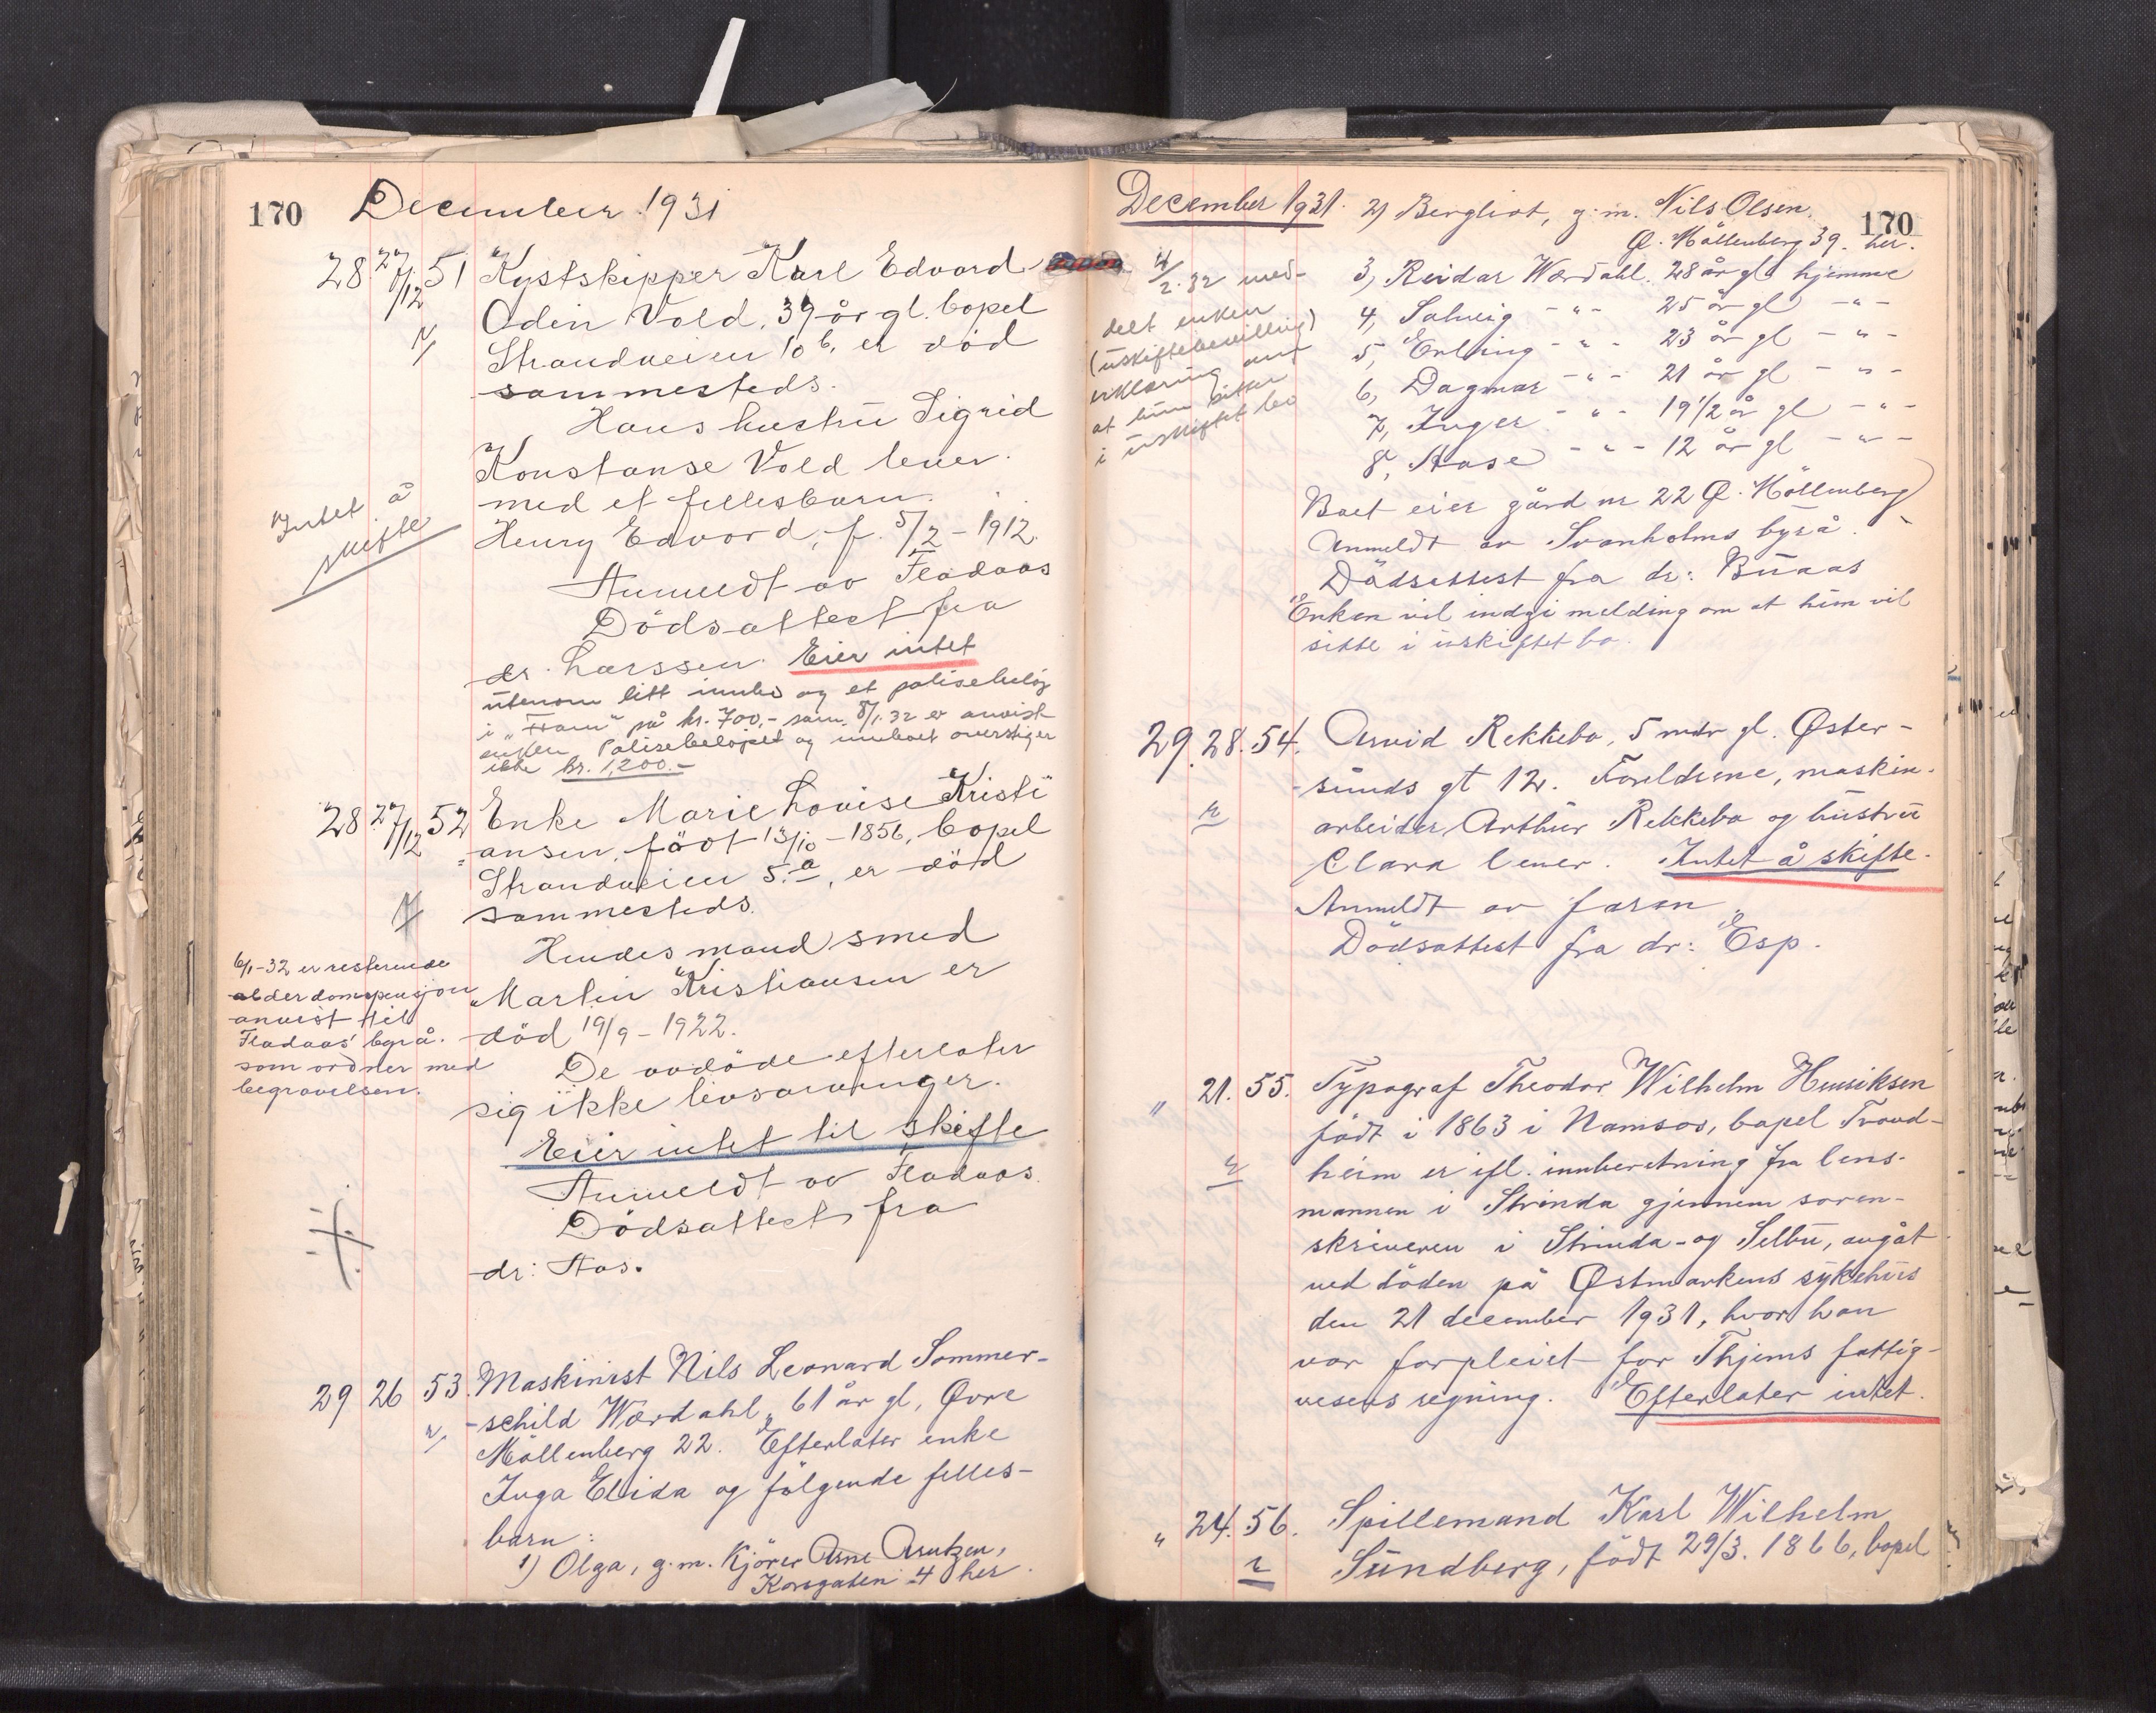 170 December 1931
28. 27/12 51 Kystskipper Karl Edvard
Odin Vold, 39 år gl. bopel
Strandveien 10 b, er död
sammesteds.
Hans hustru Sigrid
Konstanse Vold lever
med et fellesbarn.
Henry Edvard, f. 5/2 - 1912.
Intet å
skifte
Anmeldt av Fladaas
Dödsattest fra
dr. Larssen. Eier intet
utenom litt innbo og et polisebelöp
i "Fram" på kr. 700,- som 8/1.32 er anvist
enken. Polisebelöpet og innboet overstiger
ikke kr. 1,200.-
28. 27/12 52 Enke Marie Lovise Kristi
=ansen, födt 13/10 - 1856, bopel
Strandveien 5.a, er död
sammesteds.
Hendes mand smed
Martin Kristiansen er
död 19/9 - 1922.
De avdöde efterlater
sig ikke livsarvinger.
Eier intet til skifte
Anmeldt av Fladaas.
Dödsattest fra
dr: Aas.
6/1-32 er resterende
alderdomspensjon
anvist til
Fladaas' byrå.
som ordner med
begravelsen.
29 26 53. Maskinist Nils Leonard Sommer-
schild Wærdahl, 61 år gl, Øvre
Möllenberg 22. Efterlater enke
Inga Elida og fölgende felles-
barn:
1) Olga, g.m. Kjörer Arne Arntzen,
Korsgaten 4 her.
December 1931. 2) Bergliot, g.m. Nils Olsen,
170
Ø. Möllenberg 39. her.
3, Reidar Wærdahl. 28 år gl. hjemme
4, Solveig -"- 25 år gl -"-
5, Erling -"- 23 år gl -"-
6, Dagmar -"- 21 år gl -"-
7, Inger -"- 19 1/2 år gl -"-
8, Aase -"- 12 år gl -"-
4/2.32 med-
delt enken
(uskiftebevilling)
erklæring om
at hun sitter
i uskiftet bo
Boet eier gård nr 22 Ø. Möllenberg
Anmeldt av Svanholms byrå.
Dödsattest fra dr: Buaas
Enken vil indgi melding om at hun vil
sitte i uskiftet bo.
29. 28. 54. Arvid Rekkebo, 5 mdr gl. Øster-
sunds gt 12. Foreldrene, maskin-
arbeider Arthur Rekkebo og hustru
Clara lever. Intet å skifte.
Anmeldt av faren
Dödsattest fra dr: Esp.
" 21. 55. Typograf Theodor Wilhelm Henriksen
födt i 1863 i Namsos, bopel Trond-
heim er ifl. innberetning fra lens-
mannen i Strinda gjennem soren-
skriveren i Strinda- og Selbu, avgåt
ved döden på Østmarkens sykehus
den 21 december 1931, hvor han
var forpleiet for Thjems fattig-
vesens regning. Efterlater intet.
" 24. 56. Spillemand Karl Wilhelm
Sundberg, födt 29/3. 1866, bopel